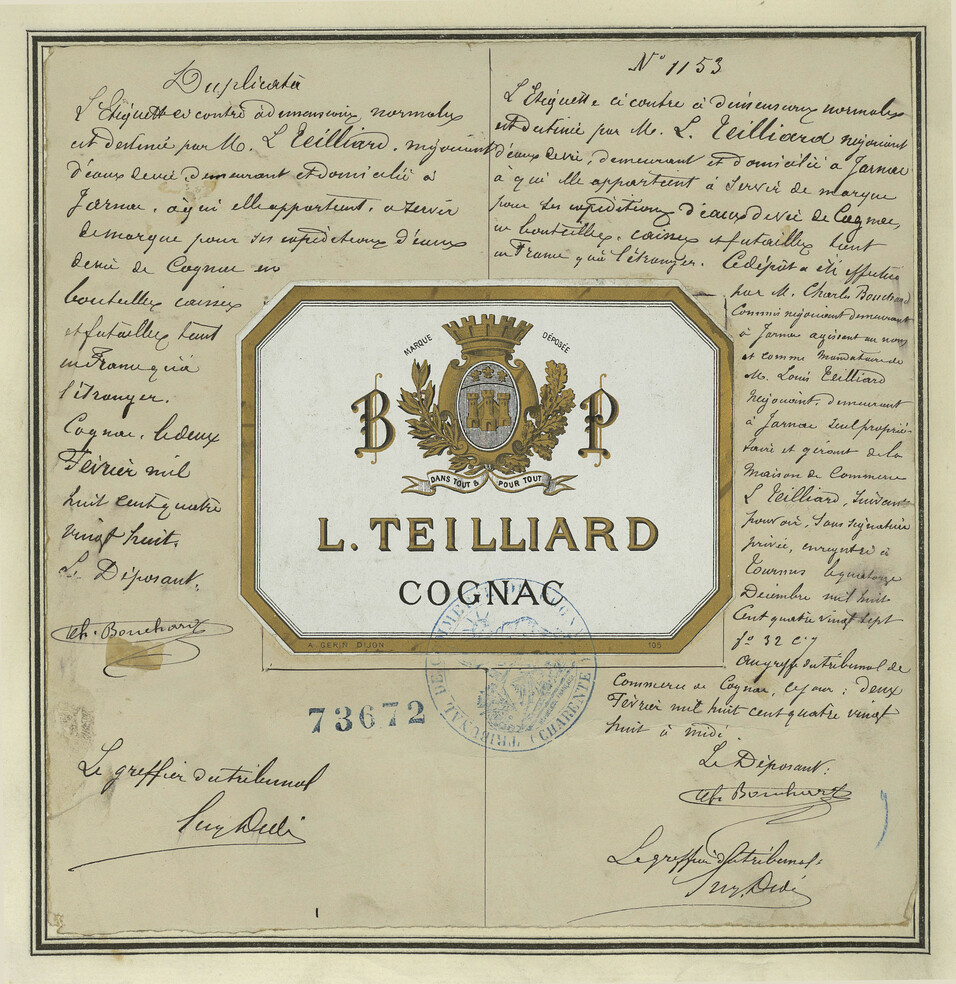 Duplicata
L'Etiquette ci contre à dimensions normales
est destinée par M. L Teilliard, négociant
d'eaux de vie, demeurant et domicilié à
Jarnac, à qui elle appartient, à servir
de marque pour ses expéditions d'eaux
de vie de Cognac en
bouteilles caisses
et futailles tant
en France qu'à
l'étranger.
Cognac, le deux
Février mil
huit cent quatre
vingt huit.
Le Déposant,
Ch. Bouchard
Le greffier du tribunal
N° 1153
L'Etiquette ci contre à dimensions normales
est destinée par M. L. Teilliard négociant
d'eaux de vie, demeurant et domicilié à Jarnac
à qui elle appartient à servir de marque
pour ses expéditions d'eaux de vie de Cognac,
en bouteilles, caisses et futailles tant
en France qu'à l'étranger. Le dépôt a été effectué
par M. Charles Bouchard
Commis négociant demeurant
à Jarnac agissant au nom
et comme mandataire de
M. Louis Teilliard
Négociant, demeurant
à Jarnac seul proprié-
taire et gérant de la
Maison de Commerce
L Teilliard, suivant
pouvoir, sous signature
privée, enregistré à
Tournus le quatorze
Décembre mil huit
Cent quatre vingt sept
f° 32 c. 7
Au greffe du tribunal de
Commerce de Cognac, ce jour : deux
Février mil huit cent quatre vingt
huit à midi.
Le Déposant :
Ch. Bouchard
Le greffier du tribunal
MARQUE DÉPOSÉE
B P
DANS TOUT & POUR TOUT
L. TEILLIARD
COGNAC
A. GERIN DIJON 105
TRIBUNAL DE COMMERCE DE COGNAC (CHARENTE)
73672